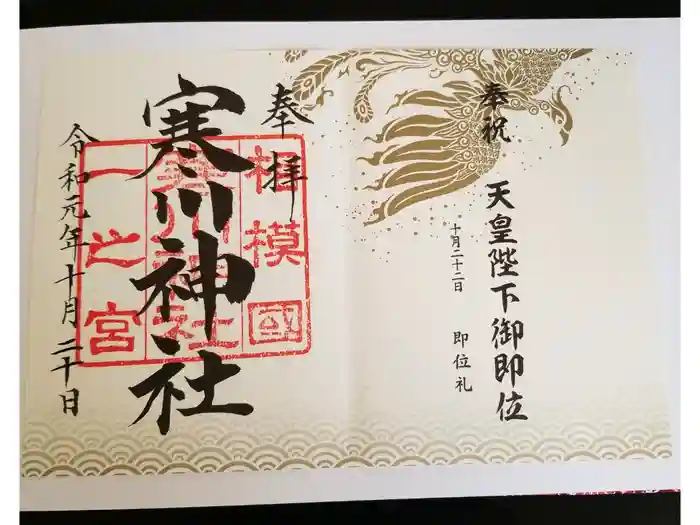 奉祝
天皇陛下御即位
十月二十二日 即位礼
奉拝
寒川神社
相模國
寒川神社
一之宮
令和元年十月二十日